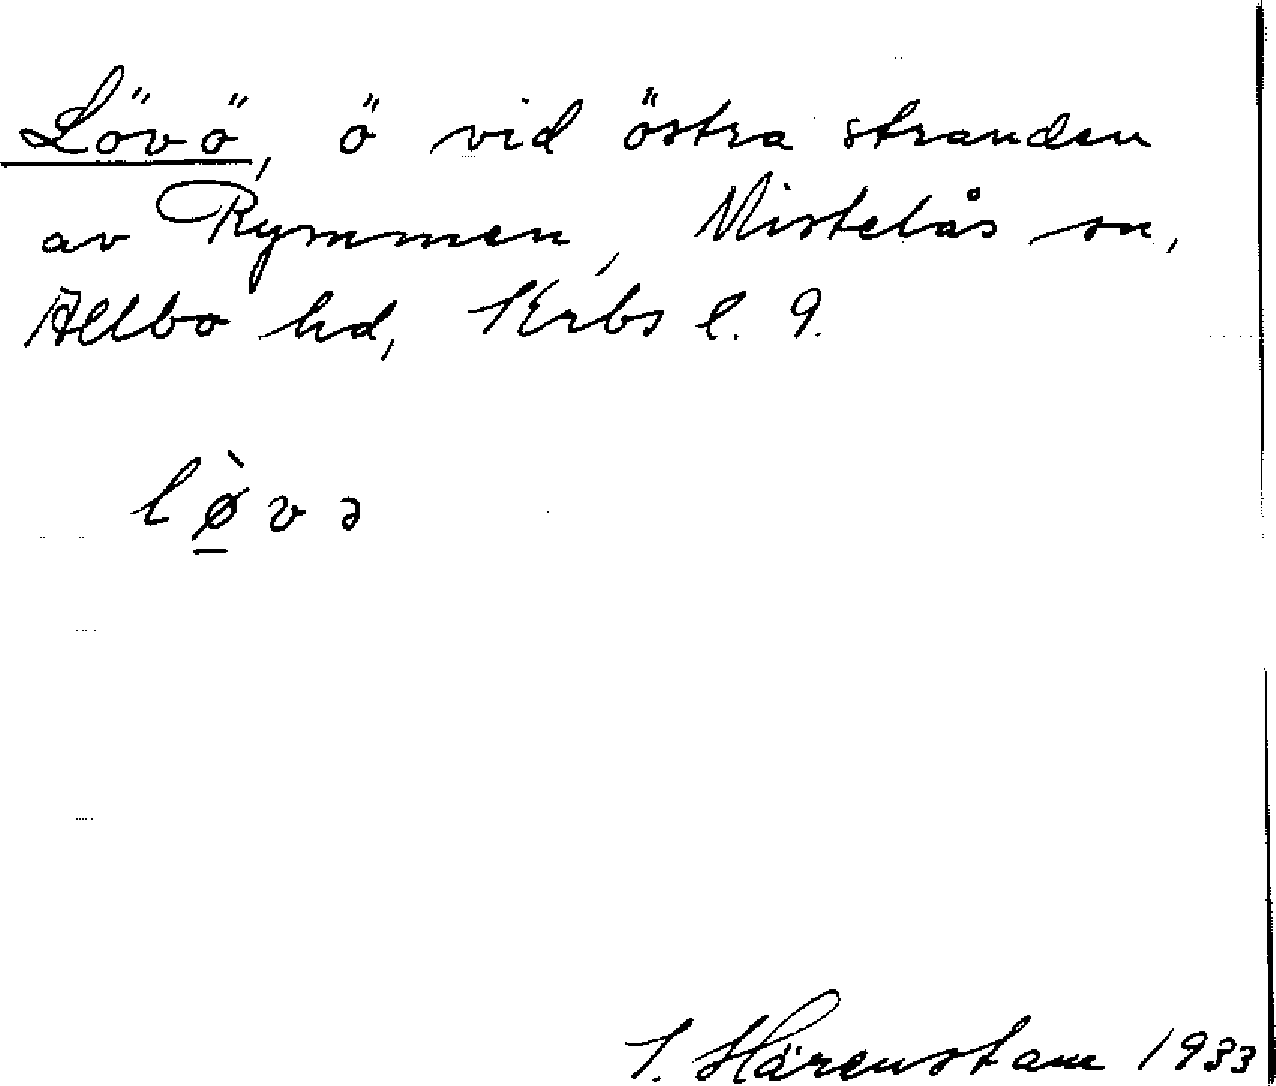 Lövö, ö vid östra stranden
av Rymmen, Mistelås sn,
Allbo hd, Krbs l. 9.
lø̱̀və
I. Härenstam 1933